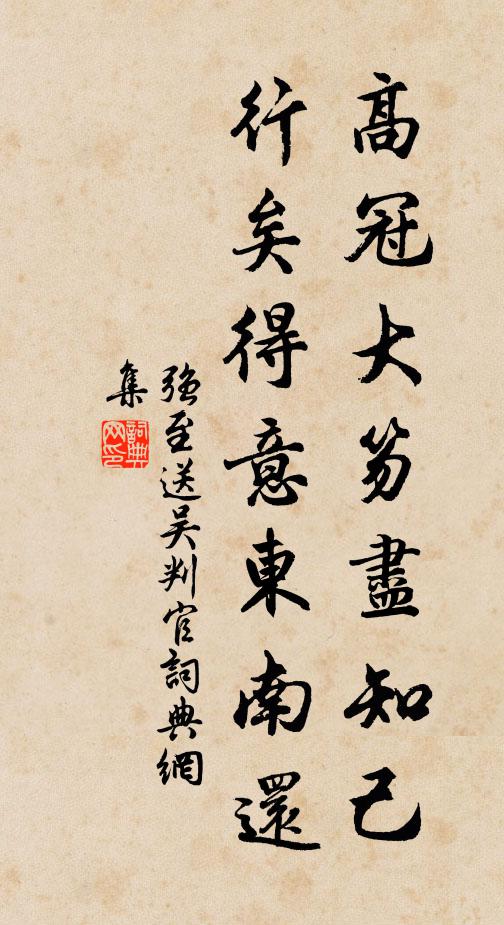 高冠大笏盡知己
行矣得意東南還
強至送吳判官詞典網
集
詞典
网印